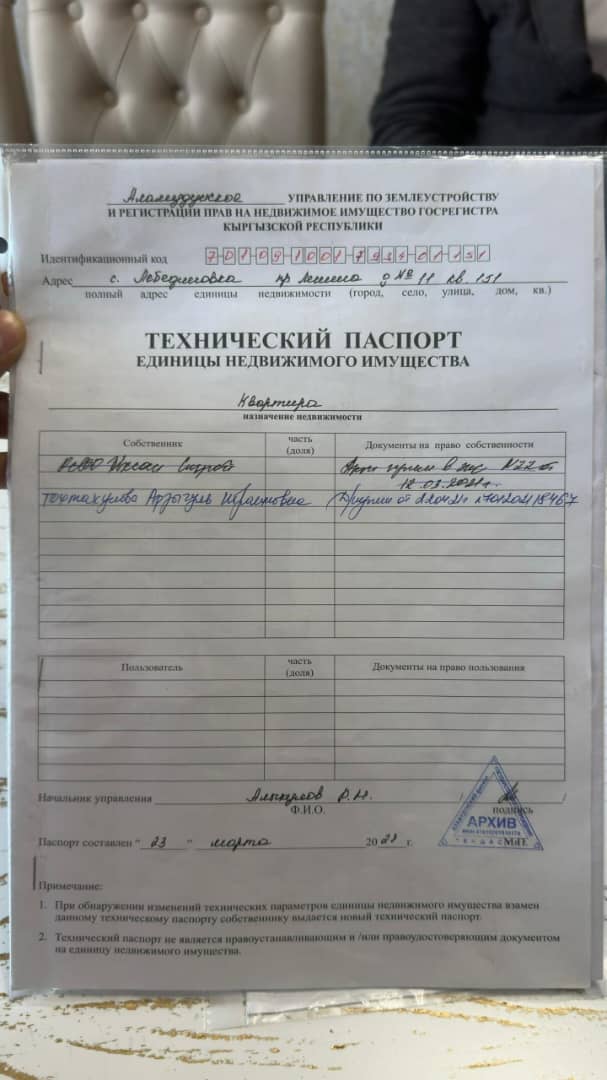 Аламудунское УПРАВЛЕНИЕ ПО ЗЕМЛЕУСТРОЙСТВУ
И РЕГИСТРАЦИИ ПРАВ НА НЕДВИЖИМОЕ ИМУЩЕСТВО ГОСРЕГИСТРА
КЫРГЫЗСКОЙ РЕСПУБЛИКИ
Идентификационный код 7-01-09-1001-7934-01-151
Адрес с. Лебединовка пр Ленина д № 11 кв. 151
полный адрес единицы недвижимости (город, село, улица, дом, кв.)
ТЕХНИЧЕСКИЙ ПАСПОРТ
ЕДИНИЦЫ НЕДВИЖИМОГО ИМУЩЕСТВА
Квартира
назначение недвижимости
Собственник часть (доля) Документы на право собственности
ОсОО Ихсан Строй Акт прием в эк. №22 от
12.03.2021г.
Арзыгуль от 22.04.21г
Пользователь часть (доля) Документы на право пользования
Начальник управления
Ф.И.О. подпись
АРХИВ
М.П.
Паспорт составлен "23" марта 2021 г.
Примечание:
1. При обнаружении изменений технических параметров единицы недвижимого имущества взамен
данному техническому паспорту собственнику выдается новый технический паспорт.
2. Технический паспорт не является правоустанавливающим и /или правоудостоверяющим документом
на единицу недвижимого имущества.